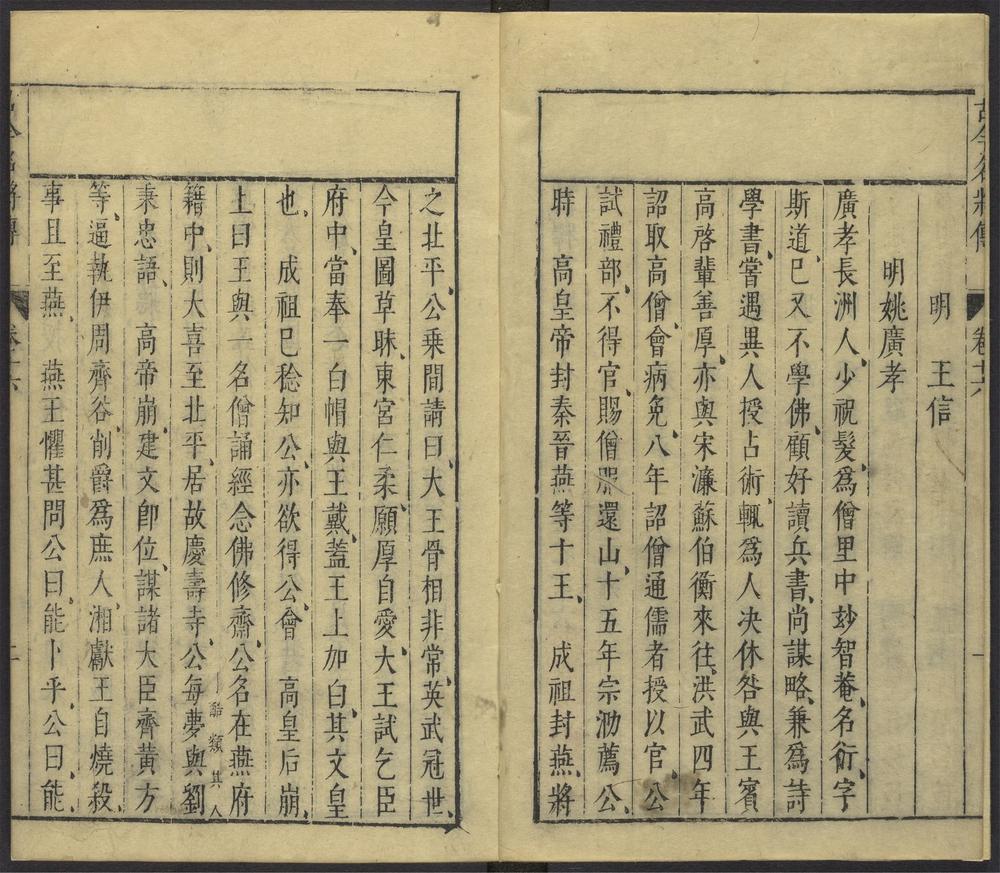 古今名將傳
卷十六
一
明　王信
明姚廣孝
廣孝長洲人少祝髮為僧里中妙智菴名衍字
斯道已又不學佛顧好讀兵書尚謀略兼為詩
學書嘗遇異人授占術輒為人決休咎與王賓
高啓輩善厚亦與宋濂蘇伯衡來往洪武四年
詔取高僧會病免八年詔僧通儒者授以官公
試禮部不得官賜僧服還山十五年宗泐薦公
時　高皇帝封秦晉燕等十王　成祖封燕將
之北平公乗間請曰大王骨相非常英武冠世
今皇圖草昧東宮仁柔願厚自愛大王試乞臣
府中當奉一白帽與王戴蓋王上加白其文皇
也　成祖已稔知公亦欲得公會　高皇后崩
上曰王與一名僧誦經念佛修齋公名在燕府
籍中則大喜至北平居故慶壽寺公每夢與劉
酷類其人
秉忠語　高帝崩建文即位謀諸大臣齊黃方
等逼執伊周齊谷削爵為庶人湘獻王自燒殺
事且至燕　燕王懼甚問公曰能卜乎公曰能
名將傳
卷十六
二